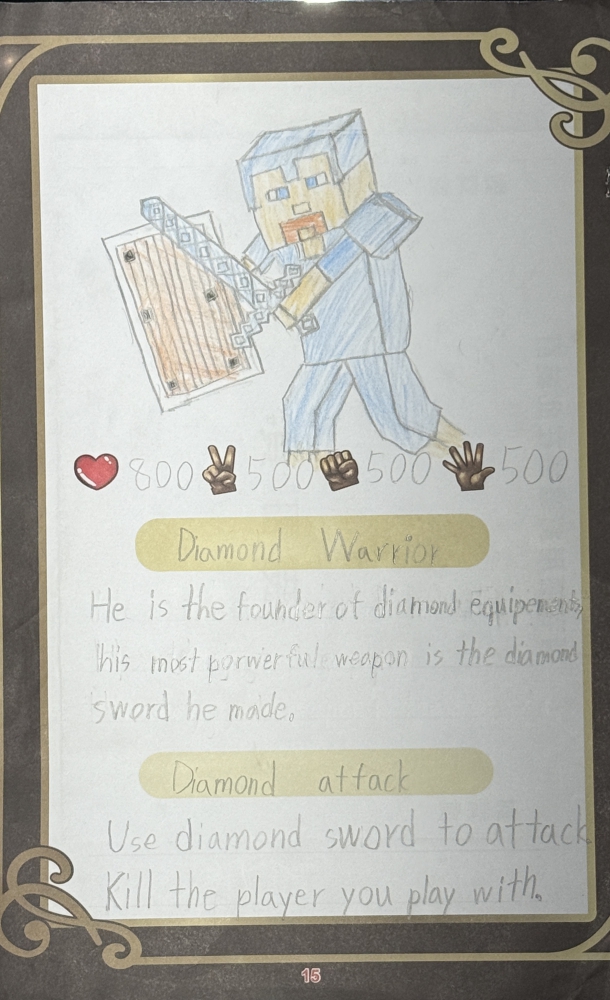 800 500 500 500
Diamond Warrior
He is the founder of diamond equipements,
his most porwerful weapon is the diamond
sword he made.
Diamond attack
Use diamond sword to attack
Kill the player you play with.
15